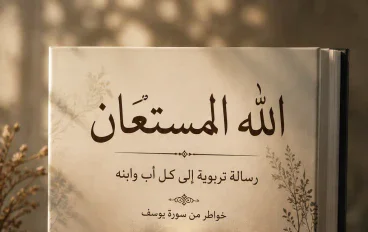 الله المستعَان
رسالة تربوية إلى كل أب وابنه
خواطر من سورة يوسف